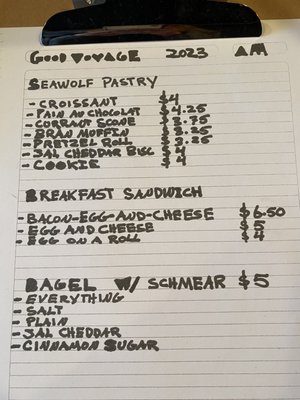 GOOD VOYAGE 2023 AM
SEAWOLF PASTRY
- CROISSANT $4
- PAIN AU CHOCOLAT $4.25
- CURRANT SCONE $3.75
- BRAN MUFFIN $3.25
- PRETZEL ROLL $3.25
- JAL CHEDDAR BISC $4
- COOKIE $4
BREAKFAST SANDWICH
- BACON-EGG-AND-CHEESE $6.50
- EGG AND CHEESE $5
- EGG ON A ROLL $4
BAGEL W/ SCHMEAR $5
- EVERYTHING
- SALT
- PLAIN
- JAL CHEDDAR
- CINNAMON SUGAR